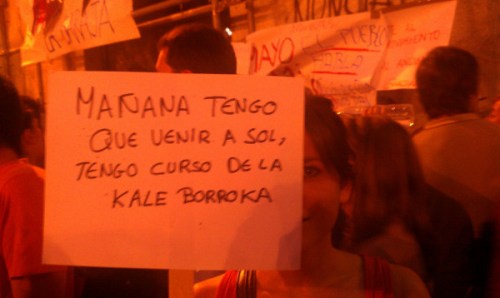 MAÑANA TENGO
QUE VENIR A SOL,
TENGO CURSO DE LA
KALE BORROKA
MAYO
PUEBLO